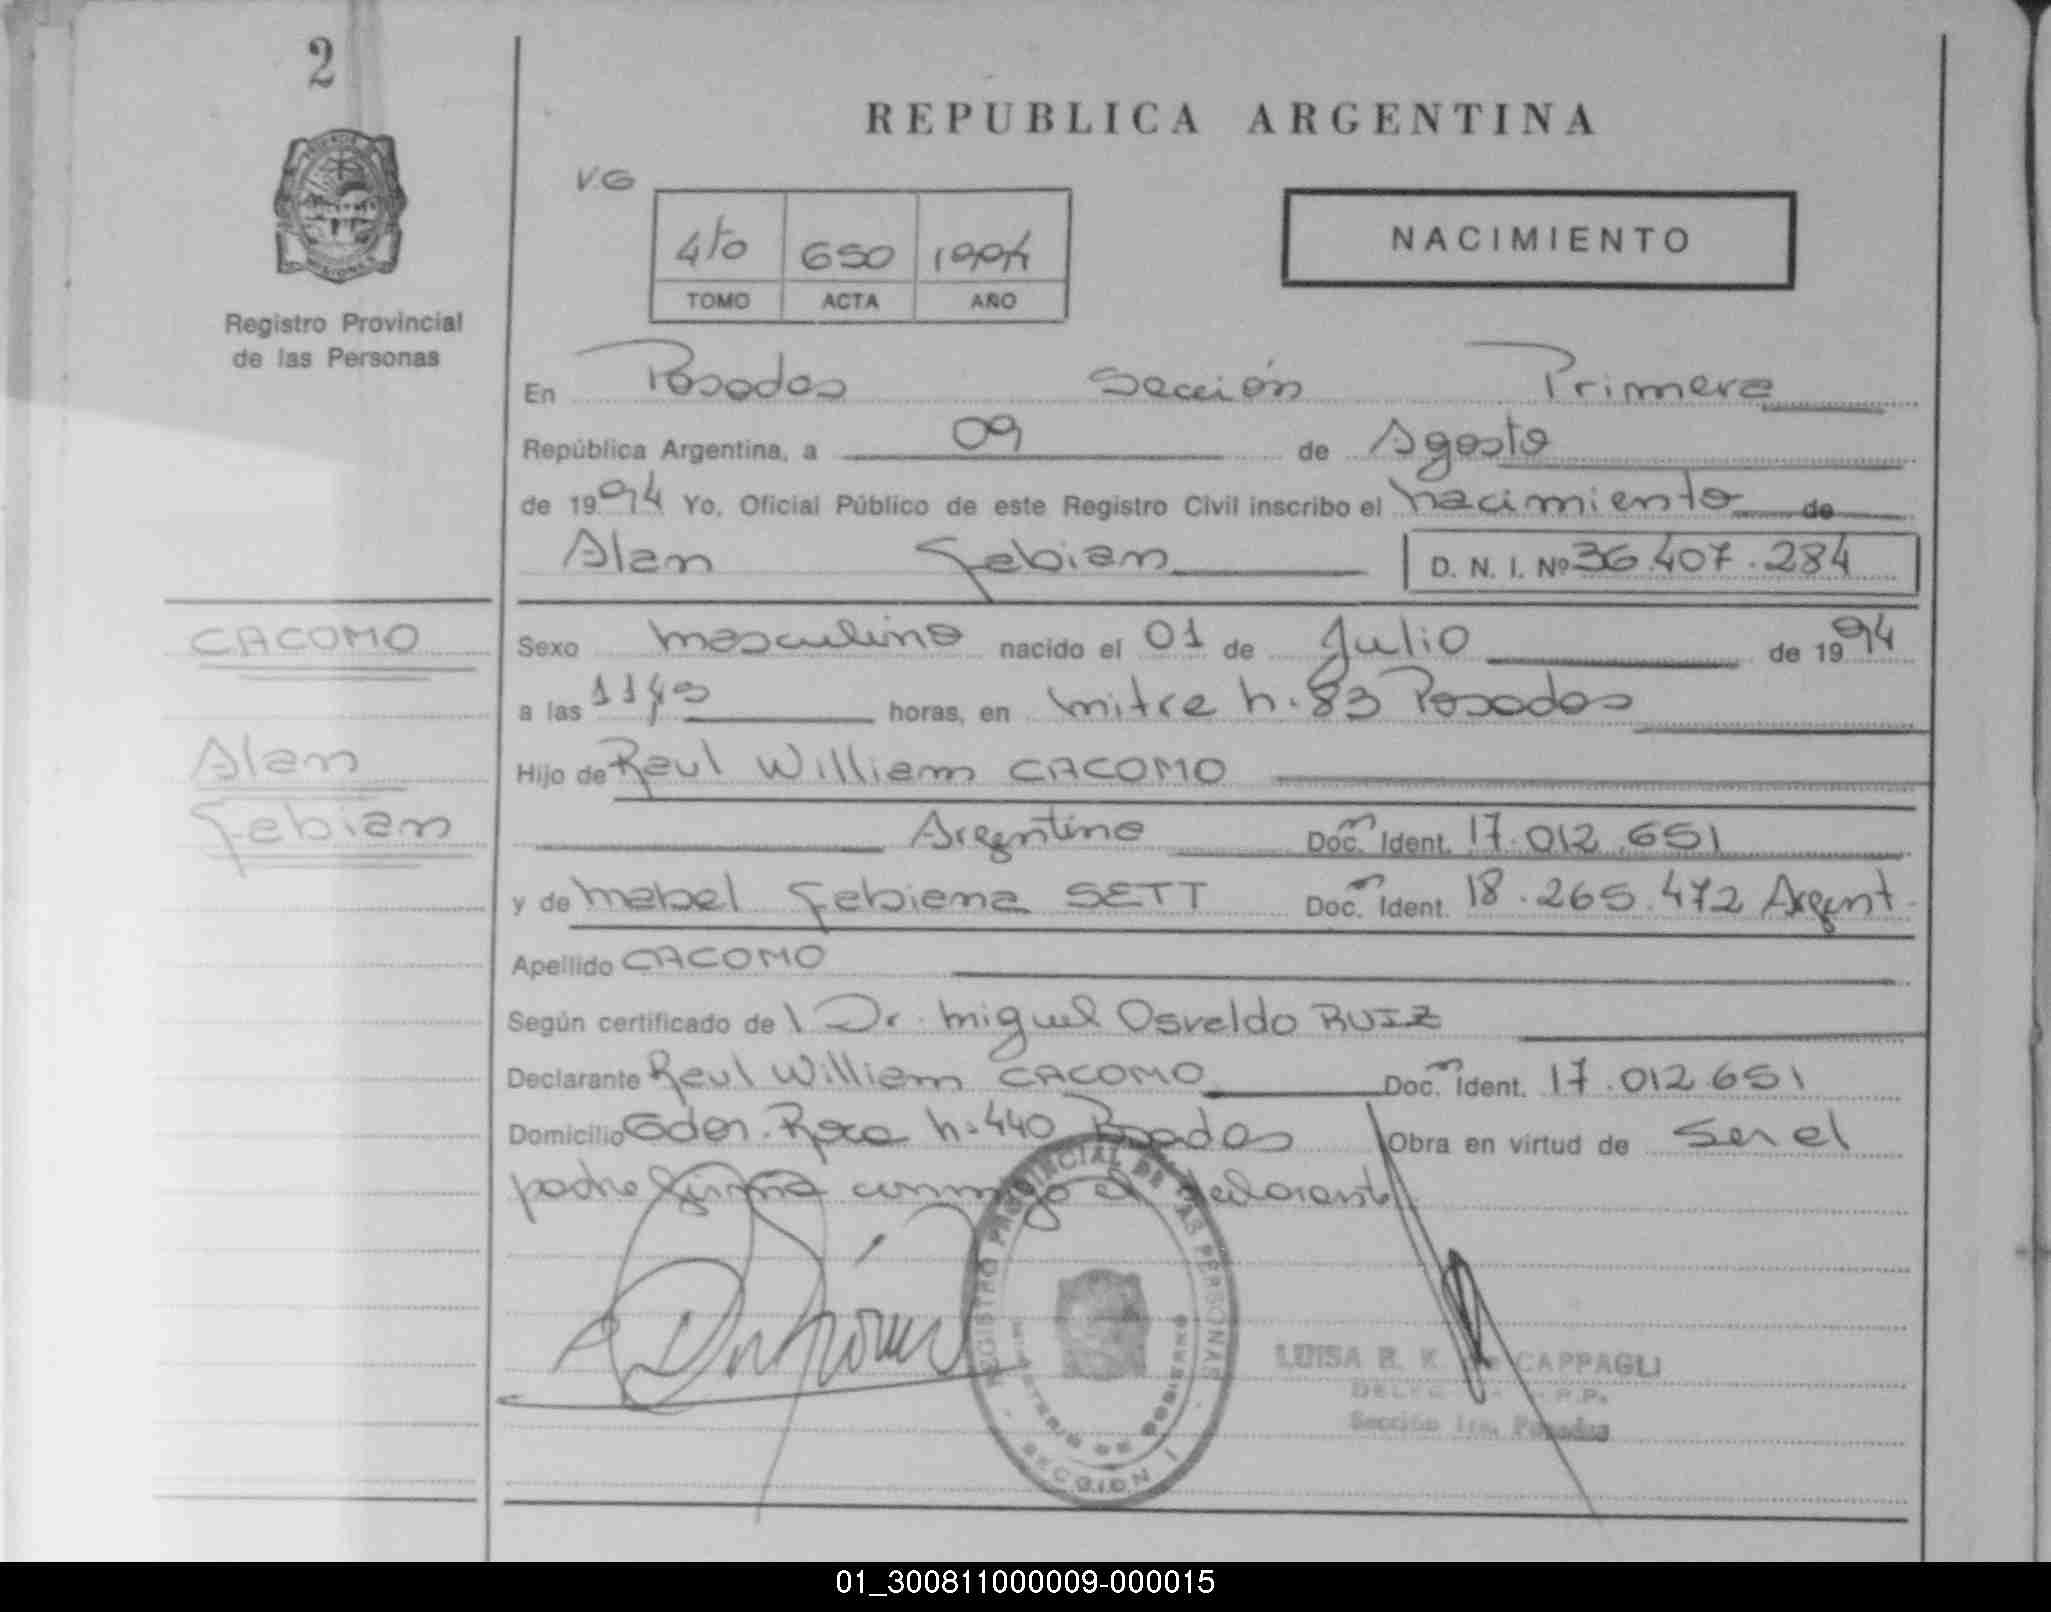 2
REPUBLICA ARGENTINA
V.G
4to 650 1994
TOMO ACTA AÑO
NACIMIENTO
Registro Provincial
de las Personas
En Posadas Sección Primera
República Argentina, a 09 de Agosto
de 1994 Yo, Oficial Público de este Registro Civil inscribo el nacimiento de
Alan Fabian D. N. I. Nº 36.407.284
CACOMO
Alan
Fabian
Sexo masculino nacido el 01 de Julio de 1994
a las horas, en Mitre n. 83 Posadas
Hijo de Raul William CACOMO
Argentino Doc. Ident. 17.012.651
y de Mabel Fabiana SETT Doc. Ident. 18.265.472 Argent.
Apellido CACOMO
Según certificado de l Dr. Miguel Osvaldo RUIZ
Declarante Raul William CACOMO Doc. Ident. 17.012.651
Domicilio Roca n. 440 Posadas Obra en virtud de ser el
padre firma conmigo el declarante
REGISTRO PROVINCIAL DE LAS PERSONAS
MINISTERIO DE GOBIERNO
SECCION I
LUISA R. K. CAPPAGLI
Sección 1ra. Posadas
01_300811000009-000015